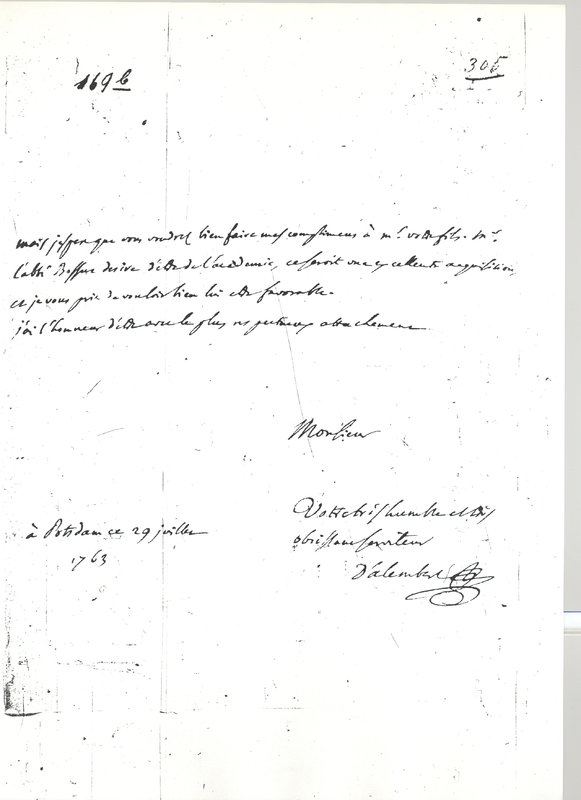 169 b
305
mais j'espere que vous voudrez bien faire mes complimens à mr. votre fils. Mr.
l'abbé Bossut desire d'être de l'academie, ce seroit une excellente acquisition,
et je vous prie de vouloir bien lui etre favorable.
j'ai l'honneur d'être avec le plus respectueux attachement
Monsieur
Votre très humble et très
obeissant serviteur
D'alembert
à Potsdam ce 29 juillet
1763